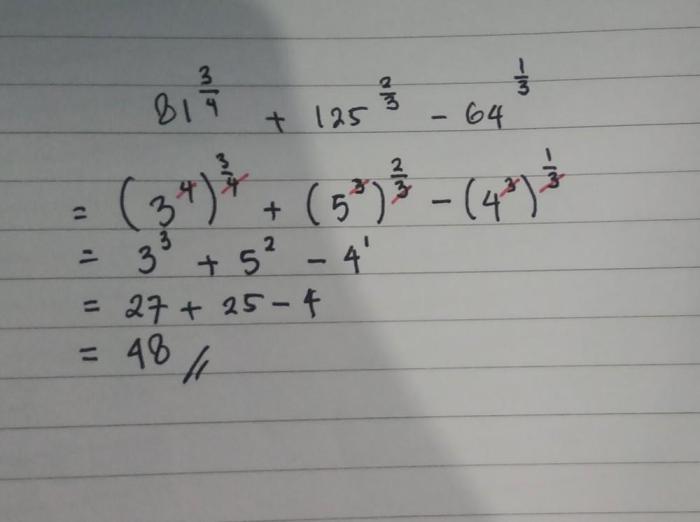 81^(3/4) + 125^(2/3) - 64^(1/3)
= (3^4)^(3/4) + (5^3)^(2/3) - (4^3)^(1/3)
= 3^3 + 5^2 - 4^1
= 27 + 25 - 4
= 48 //